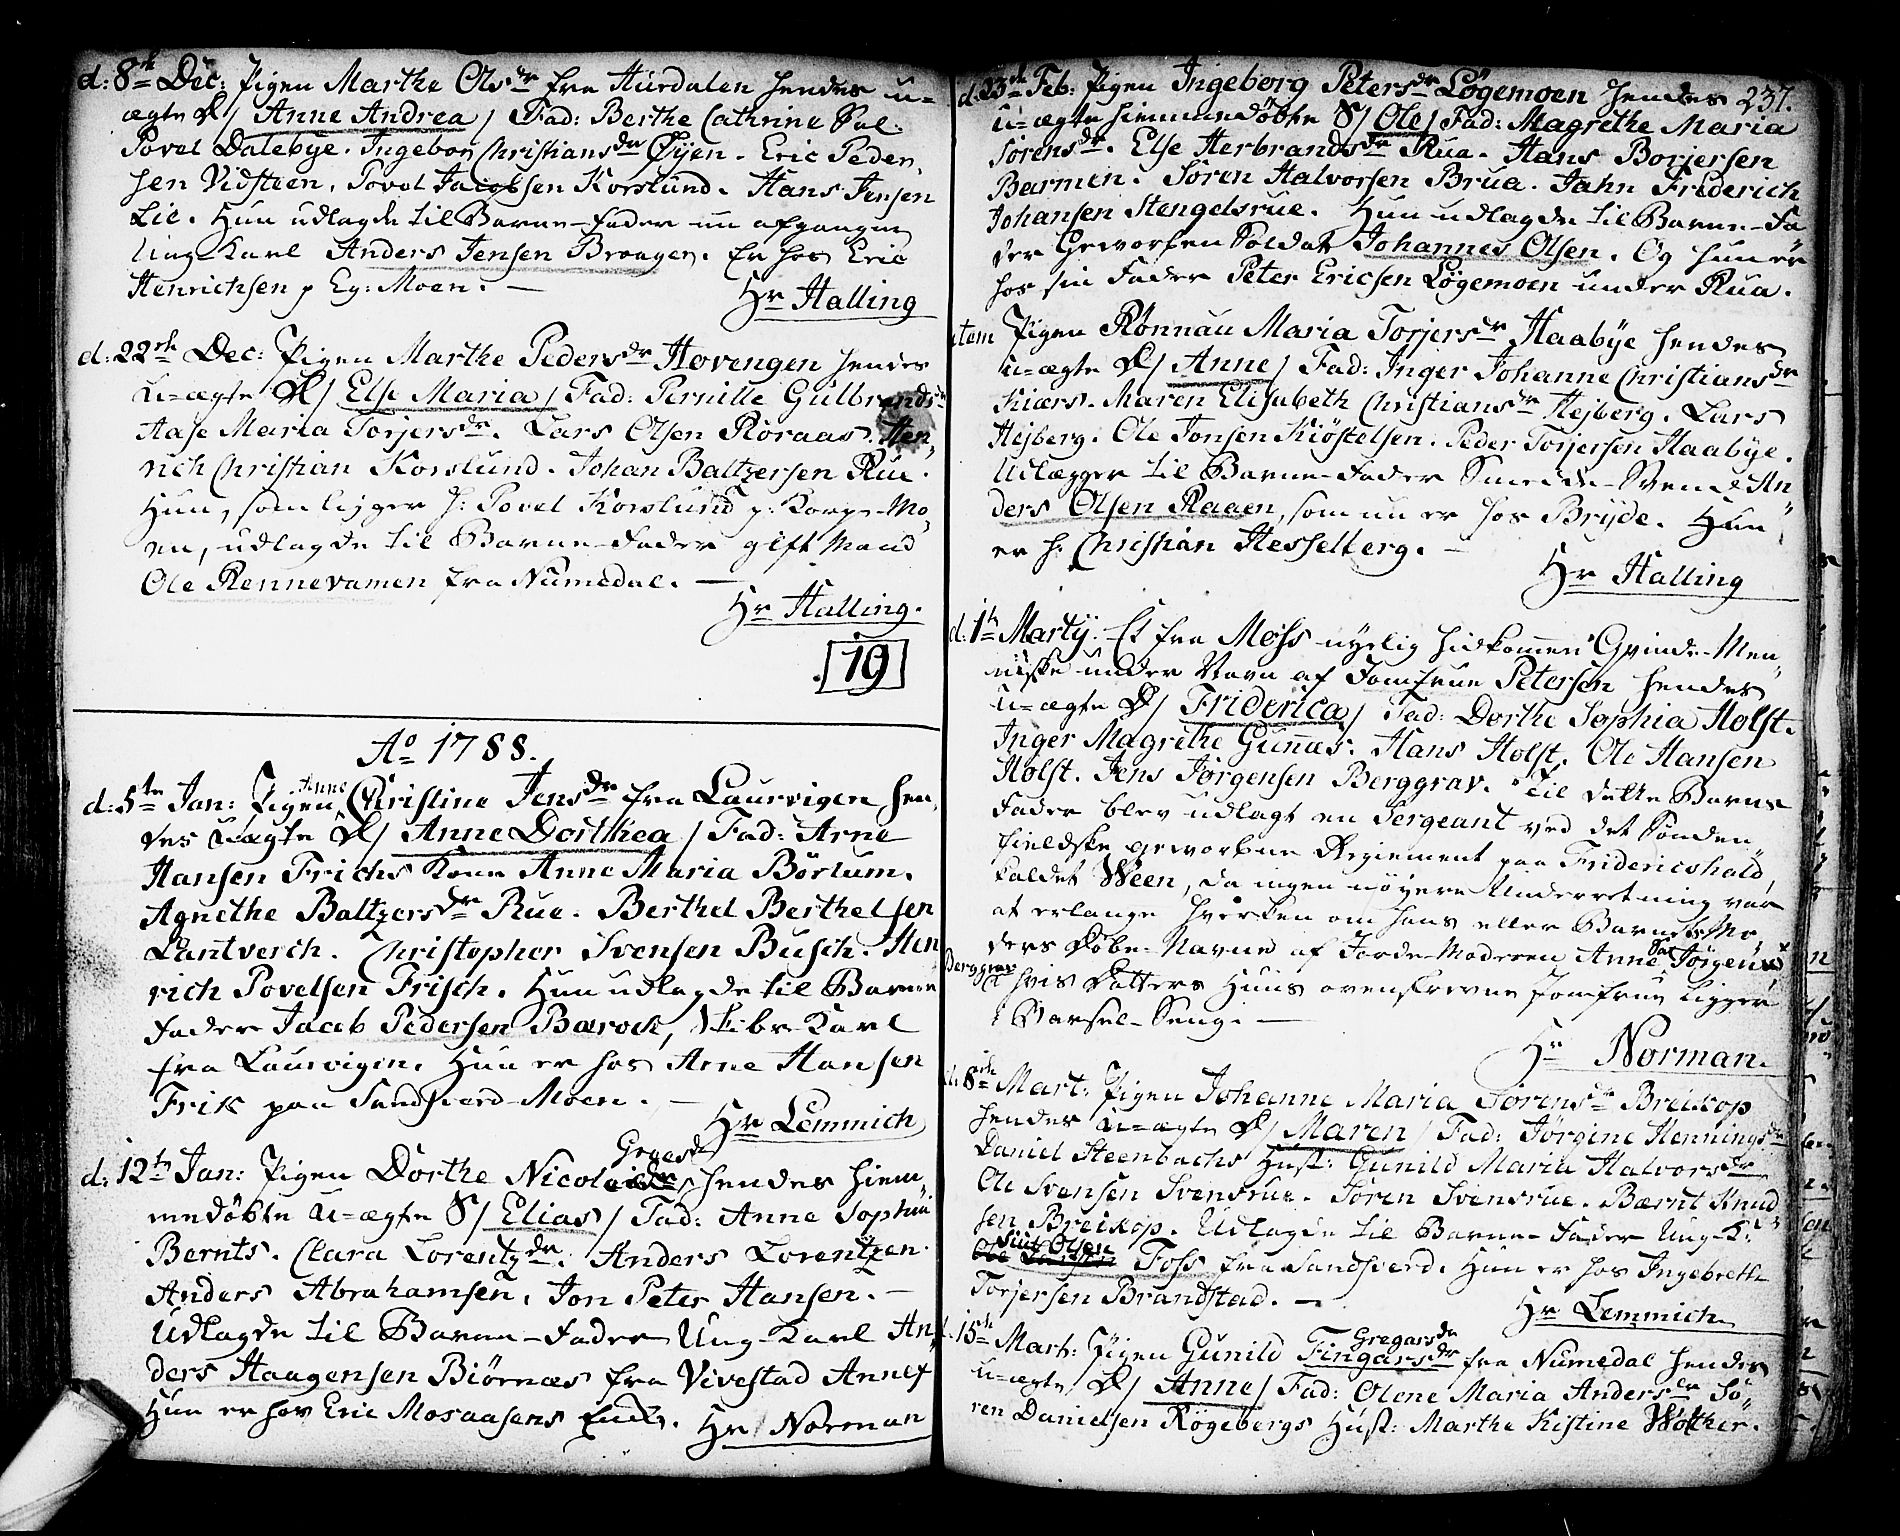 d: 8de Dec: Pigen Marthe Olsdr fra Hurdalen hendes u-
ægte D/ Anne Andrea / Fad: Berthe Cathrine Sal.
Povel Dalebye. Ingebor Christiansdr Øyen. Eric Peder
sen Vidsteen, Povel Jacobsen Korslund. Hans Jensen
Lie. Hun udlagde til Barne-Fader nu afgangen
Ung Karl Anders Jensen Braagen. Er hos Eric
Henrichsen p Eg: Moen. —
Hr Halling
d: 22de Dec: Pigen Marthe Pedersdr Hovengen hendes
U-ægte D/ Else Maria / Fad: Pernille Gulbrandsdr
Aase Maria Torjersdr. Lars Olsen Roraas. Hen
rich Christian Korslund. Johan Baltzersen Rue.
Hun, som ligger h: Povel Korslund p: Korps-Mo
en, udlagde til Barne-Fader gift Mand
Ole Rennevamen fra Numedal. —
Hr Halling.
19
Ao 1788.
d: 5te Jan: Pigen Anne Christine Jensdr fra Laurvigen hen
des uægte D/ Anne Dorthea / Fad: Arne
Hansen Frichs Kone Anne Maria Börtum.
Agnethe Baltzersdr Rue. Berthel Berthelsen
Lantverch. Christopher Svensen Busch. Hen
rich Povelsen Frisch. Hun udlagde til Barne
Fader Jacob Pedersen Barock, Karl
fra Laurvigen. Hun er hos Arne Hansen
Frik paa Sandsverd-Moen. —
Hr Lemmich
d: 12te Jan: Pigen Dorthe Nicolai Gregesdr hendes hiem
medöbte u-ægte S/ Elias / Fad: Anne Sophia
Bernts. Clara Lorentzdr. Anders Lorentzen.
Anders Abrahamsen. Jon Peter Hansen. —
Udlagde til Barne-Fader Ung-Karl An
ders Haagensen Biørnæs fra Vivestad Annex
Hun er hos Eric Mosaasens Enke. Hr Norman
237.
d. 23de Feb: Pigen Ingeborg Petersdr Løgemoen hendes
u-ægte hiemmedöbte S/ Ole / Fad: Magrethe Maria
Sørensdr. Else Herbrandsdr Rua. Hans Borjersen
Barmen. Søren Halvorsen Brua. Jahn Friderich
Johansen Stengelsrue. Hun udlagde til Barne-Fa
der Geworfen Soldat Johannes Olsen. Og hun er
hos sin Fader Peter Ericsen Løgemoen under Rua.
Item Pigen Rönnau Maria Torjersdr Haabye hendes
u-ægte D/ Anne / Fad: Inger Johanne Christiansdr
Kiærs. Maren Elisabeth Christiansdr Hejberg. Lars
Hejberg. Ole Jonsen Kiöstelsen. Peder Torjersen Haabye.
Udlægger til Barne-Fader Smede-Svend An
ders Olsen Raaen, som nu er hos Bryde. Hun
er h: Christian Hesselberg. —
Hr Halling
d: 1te Martÿ. Et fra Moss nyelig hidkommen Qvinde-Men
niske under Navn af Jomfrue Petersen hendes
u-ægte D/ Friderica / Fad: Dorthe Sophia Holst.
Inger Magrethe Gunnæs. Hans Holst. Ole Hansen
Holst. Jens Jørgensen Berggrav. Til dette Barns
Fader blev udlagt en Sergeant ved det Sønden
fieldske geworbne Regiement paa Fridericshald,
kaldet Ween, da ingen nøyere Underretning var
at erlange hverken om hans eller Barnets Mo
ders Döbe-Navne af Jorde-Moderen Anne Sal Jørgens
Berggrav hvis Datters Huus ovenskrevne Jomfrue ligger
i Barsel-Seng. —
Hr Norman.
d. 8de Mart: Pigen Johanne Maria Sörensdr Breikop
hendes u-ægte D/ Maren / Fad: Jørgine Henningsdr
Daniel Steenbachs Hust: Gunild Maria Halvorsdr
Ole Svensen Svensrue. Søren Svensrue. Bærnt Knud
sen Breikop. Udlagde til Barne-Fader Ung-K:
Siul Olsen Foss fra Sandsverd. Hun er hos Ingebreth
Torjersen Brandstad. —
Hr Lemmich
15de Mart: Pigen Gunild Fingarsdr Gregarsdr fra Numedal hendes
u-ægte D/ Anne / Fad: Olene Maria Andersdr Sö
ren Danielsen Rögebergs Hust: Marthe Kistine Wölther.